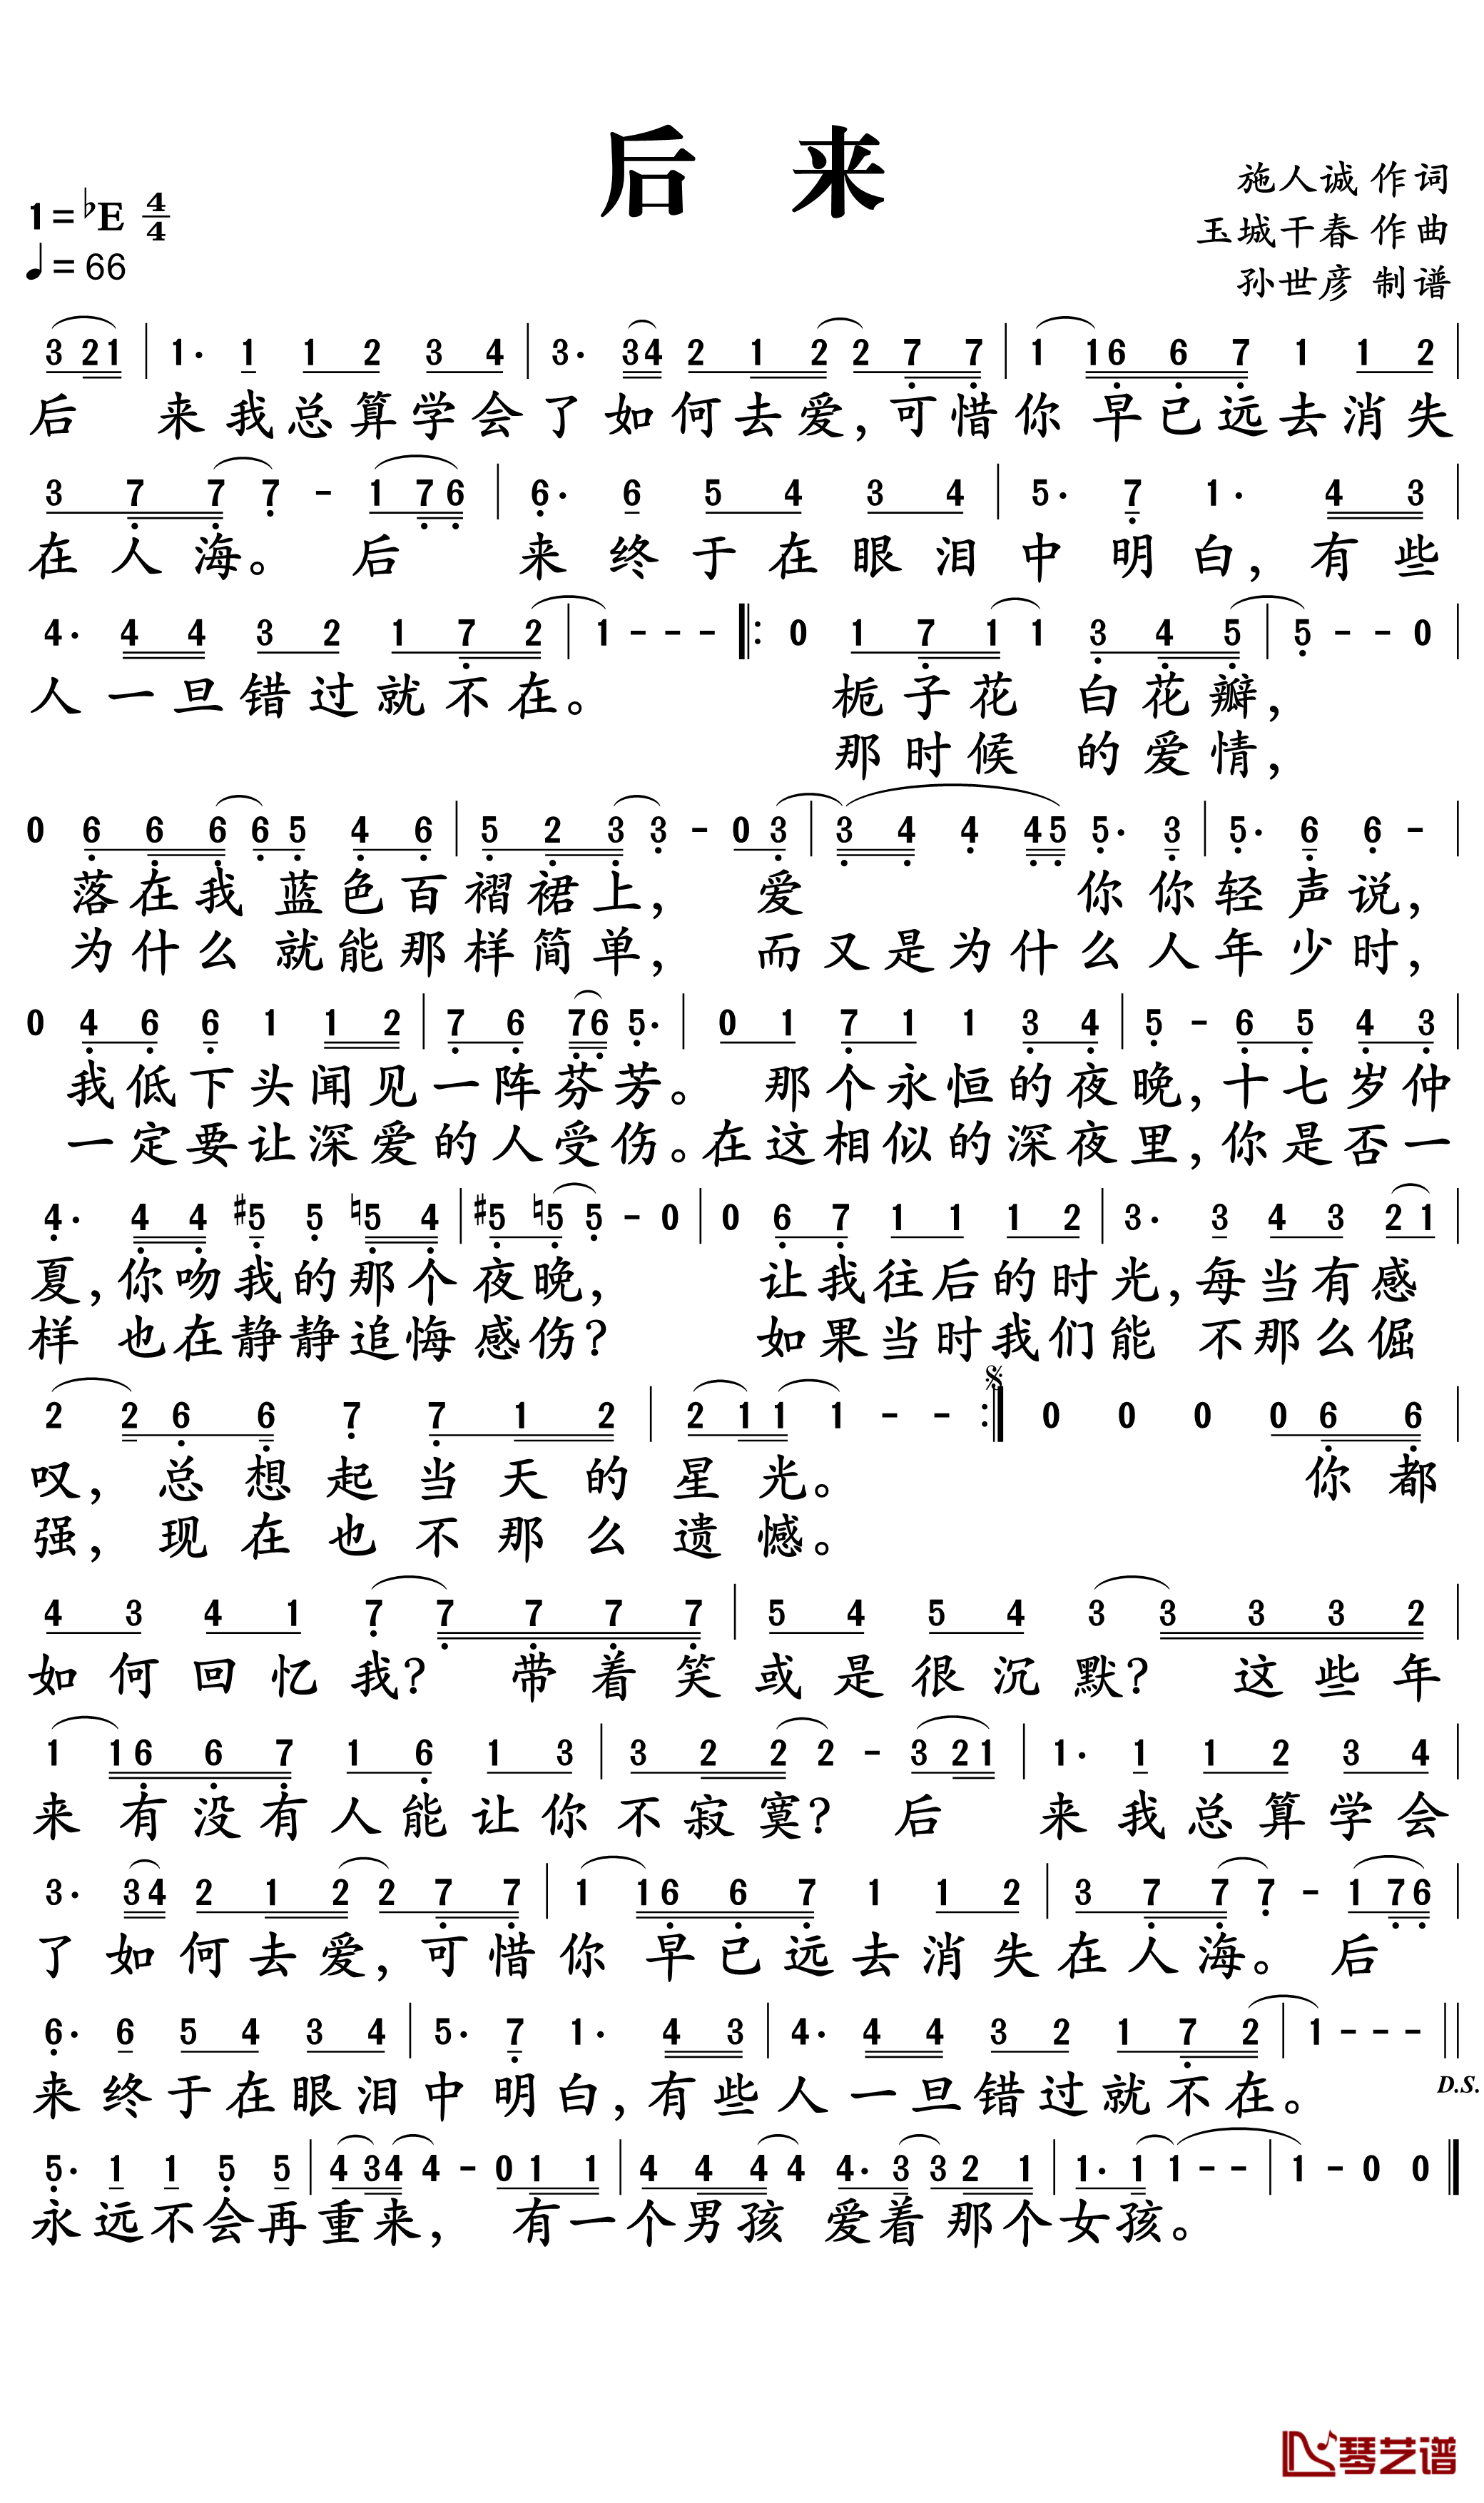 后 来
施人诚 作词
1=♭E 4/4
玉城干春 作曲
♩=66
孙世彦 制谱
3 21 | 1· 1 1 2 3 4 | 3· 34 2 1 2 2 7 7 | 1 16 6 7 1 1 2 |
后 来我总算学会了如何去爱,可惜你 早已远去消失
3 7 7 7 - 1 76 | 6· 6 5 4 3 4 | 5· 7 1· 4 3 |
在人海。 后 来终于在眼泪中明白,有些
4· 4 4 3 2 1 7 2 | 1 - - - ‖: 0 1 7 1 1 3 4 5 | 5 - - 0 |
人一旦错过就不在。 栀子花 白花瓣,
那时候 的爱情,
0 6 6 6 6 5 4 6 | 5 2 3 3 - 0 3 | 3 4 4 45 5· 3 | 5· 6 6 - |
落在我 蓝色百褶裙上, 爱 你你轻声说,
为什么 就能那样简单, 而又是为什么人年少时,
0 4 6 6 1 1 2 | 7 6 76 5· | 0 1 7 1 1 3 4 | 5 - 6 5 4 3 |
我低下头闻见一阵芬芳。 那个永恒的夜晚,十七岁仲
一定要让深爱的人受伤。在这相似的深夜里,你是否一
4· 4 4 #5 5 ♮5 4 | #5 ♮5 5 - 0 | 0 6 7 1 1 1 2 | 3· 3 4 3 2 1 |
夏,你吻我的那个夜晚, 让我往后的时光,每当有感
样 也在静静追悔感伤? 如果当时我们能 不那么倔
2 2 6 6 7 7 1 2 | 2 1 1 1 - - :‖ 0 0 0 0 6 6 |
叹,总想起当天的星光。 你都
强,现在也不那么遗憾。
4 3 4 1 7 7 7 7 7 | 5 4 5 4 3 3 3 3 2 |
如何回忆我? 带着笑或是很沉默? 这些年
1 16 6 7 1 6 1 3 | 3 2 2 2 - 3 21 | 1· 1 1 2 3 4 |
来 有没有人能让你不寂寞? 后 来我总算学会
3· 34 2 1 2 2 7 7 | 1 16 6 7 1 1 2 | 3 7 7 7 - 1 76 |
了如何去爱,可惜你 早已远去消失在人海。 后
6· 6 5 4 3 4 | 5· 7 1· 4 3 | 4· 4 4 3 2 1 7 2 | 1 - - - ‖
来终于在眼泪中明白,有些人一旦错过就不在。
D.S.
5· 1 1 5 5 | 4 34 4 - 0 1 1 | 4 4 4 4 4· 3 3 2 1 | 1· 1 1 - - | 1 - 0 0 ‖
永远不会再重来, 有一个男孩 爱着那个女孩。
琴艺谱